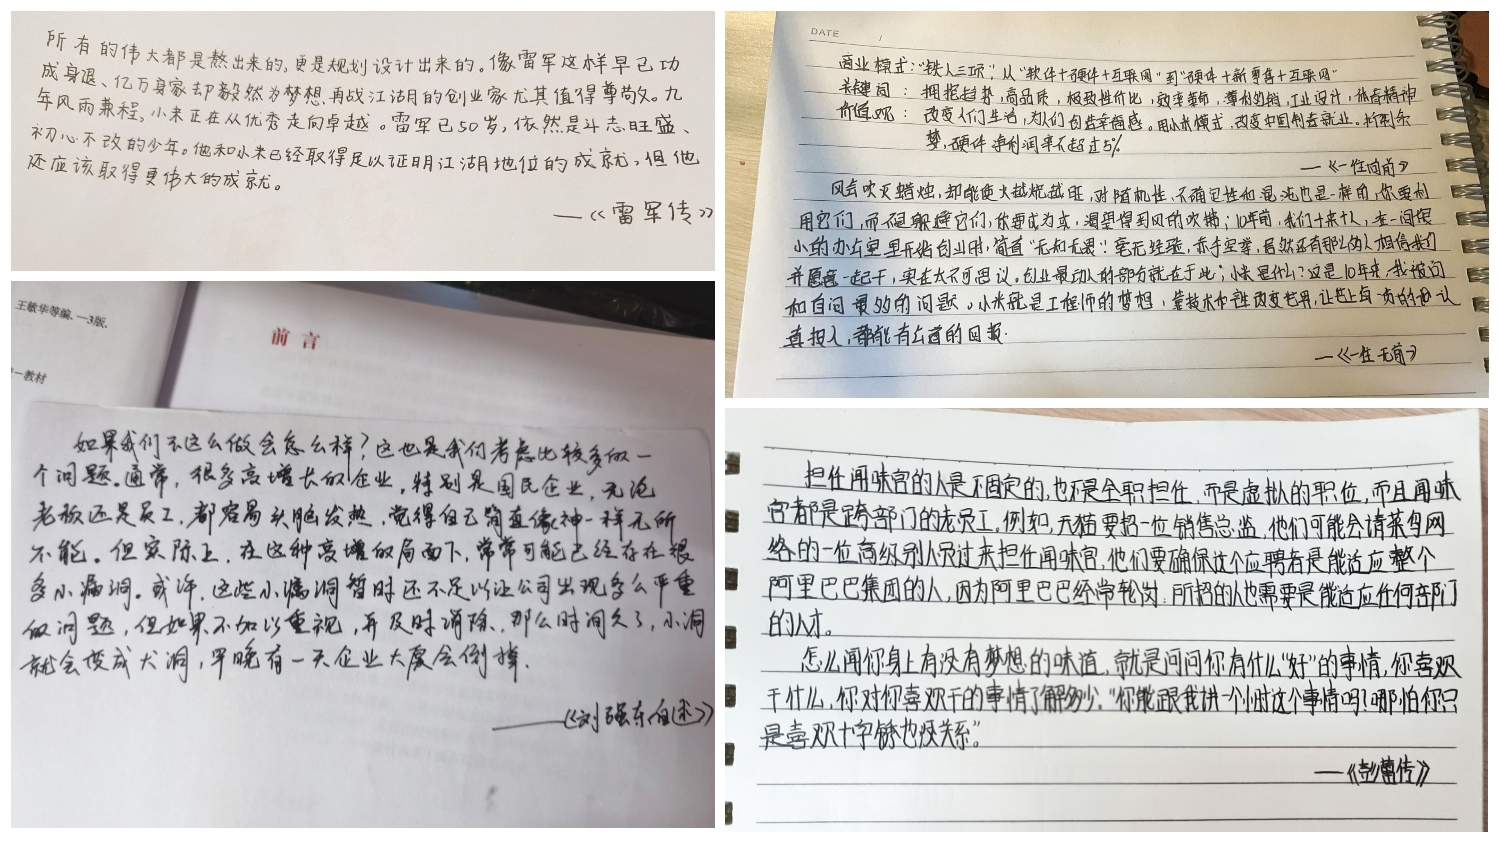 所有的伟大都是熬出来的,更是规划设计出来的。像雷军这样早已功
成身退、亿万身家却毅然为梦想再战江湖的创业家尤其值得尊敬。九
年风雨兼程,小米正在从优秀走向卓越。雷军已50岁,依然是斗志旺盛、
初心不改的少年。他和小米已经取得足以证明江湖地位的成就,但他
还应该取得更伟大的成就。
—《雷军传》
DATE /
商业模式:"铁人三项",从"软件+硬件+互联网"到"硬件+新零售+互联网"
关键词: 拥抱趋势,高品质,极致性价比,效率革命,尊重,工业设计,体育精神
价值观: 改变人们生活,为人们创造幸福感。用小米模式,改变中国制造业。
梦,硬件净利润率不超过5%
—《一往向前》
风会吹灭蜡烛,却能使火越烧越旺,对随机性、不确定性和混沌也是一样的,你要利
用它们,而不是躲避它们,你要成为火,渴望得到风的吹拂;10年前,我们十来个人,在一间很
小的办公室里开始创业时,简直"无知无畏"!毫无经验,赤手空拳,居然还有那么的人相信我们
并愿意一起干,实在太不可思议。创业最动人的部分就在于此;小米是什么?这是10年来,我被问
和自问最多的问题。小米就是工程师的梦想,靠技术改变世界,让世上每一份的认
真投入,都能有公道的回报.
—《一往无前》
王敏华等编.—3版.
—教材
前言
如果我们不这么做会怎么样?这也是我们考虑比较多的一
个问题。通常,很多高增长的企业,特别是国民企业,无论
老板还是员工,都容易头脑发热,觉得自己简直像神一样无所
不能。但实际上,在这种高增的局面下,常常可能已经存在很
多小漏洞。或许,这些小漏洞暂时还不足以让公司出现多么严重
的问题,但如果不加以重视,并及时消除,那么时间久了,小洞
就会变成大洞,早晚有一天企业大厦会倒掉.
——《刘强东自述》
担任闻味官的人是不固定的,也不是全职担任,而是虚拟的职位,而且闻味
官都是跨部门的老员工,例如,天猫要招一位销售总监,他们可能会请菜鸟网
络的一位高级别人员过来担任闻味官,他们要确保这个应聘者是能适应整个
阿里巴巴集团的人,因为阿里巴巴经常轮岗,所招的人也需要是能适应任何部门
的人才。
怎么闻你身上有没有梦想的味道,就是问问你有什么"好"的事情,你喜欢
干什么,你对你喜欢干的事情了解多少。"你能跟我讲一个小时这个事情吗?哪怕你只
是喜欢十字绣也没关系。"
—《彭蕾传》